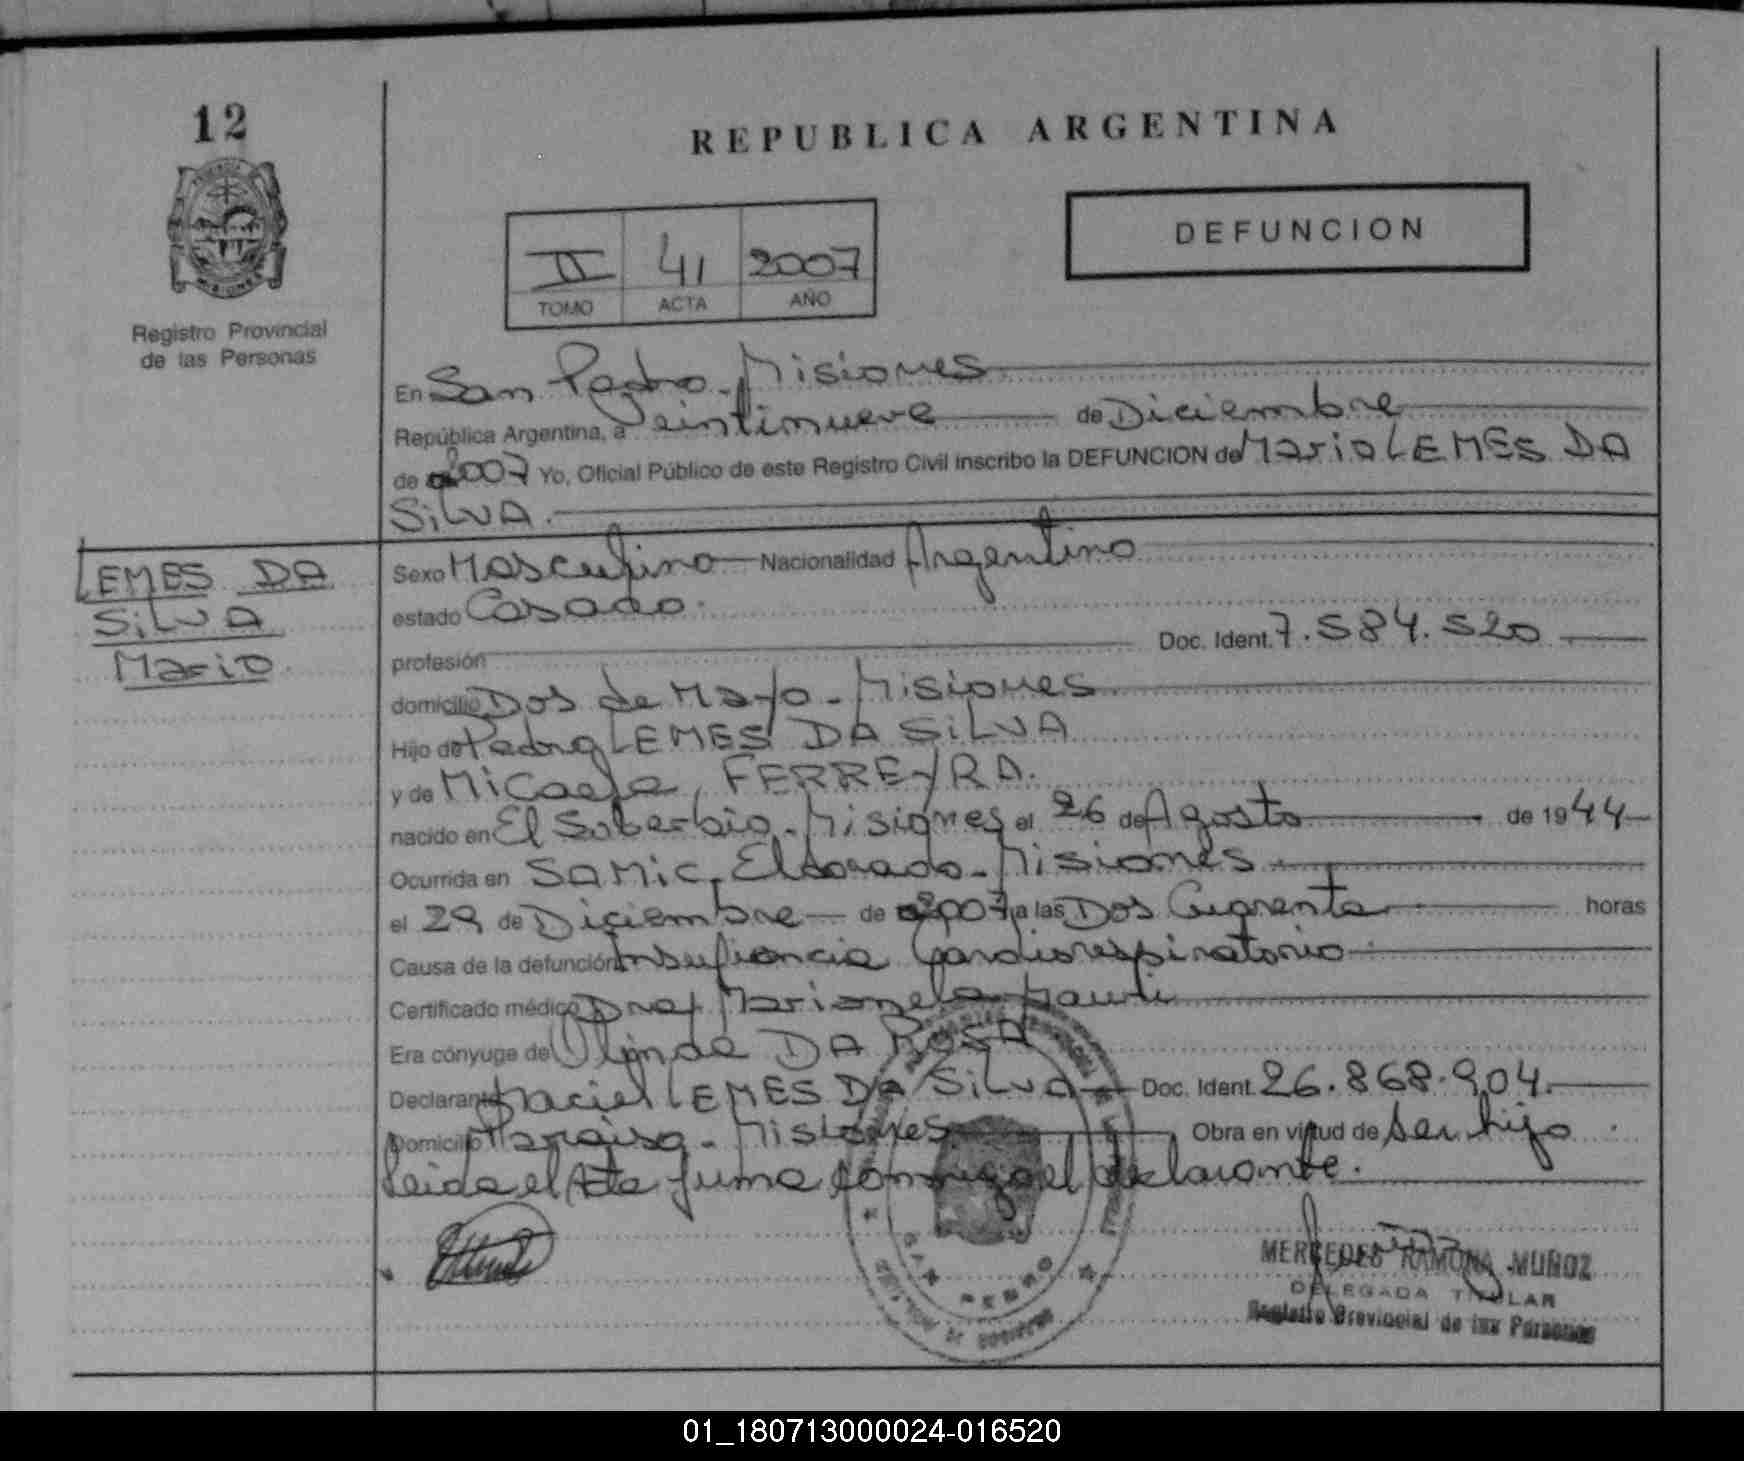 12
REPUBLICA ARGENTINA
DEFUNCION
II 41 2007
TOMO ACTA AÑO
Registro Provincial
de las Personas
En San Pedro - Misiones
República Argentina, a Veintinueve de Diciembre
de 2007 Yo, Oficial Público de este Registro Civil inscribo la DEFUNCION de Mario LEMES DA
SiLVA.
LEMES DA
SiLVA
Mario
Sexo Masculino Nacionalidad Argentino
estado Casado.
profesión Doc. Ident. 7.584.520
domicilio Dos de Mayo - Misiones
Hijo de Pedro LEMES DA SiLVA
y de Micaela FERREYRA.
nacido en El Soberbio - Misiones el 26 de Agosto de 1944
Ocurrida en SAMiC, Eldorado - Misiones
el 29 de Diciembre de 2007 a las Dos Cuarenta horas
Causa de la defunción Insufiencia Cardiorespiratorio
Certificado médico Dra. Marianela
Era cónyuge de Olinda DA ROSA
Declarante LEMES DA SiLVA Doc. Ident. 26.868.904.
Domicilio Paraiso - Misiones Obra en virtud de ser hijo.
Leida el Acta firma conmigo el declarante.
SAN PEDRO
MERCEDES RAMONA MUÑOZ
DELEGADA TITULAR
Registro Provincial de las Personas
01_180713000024-016520